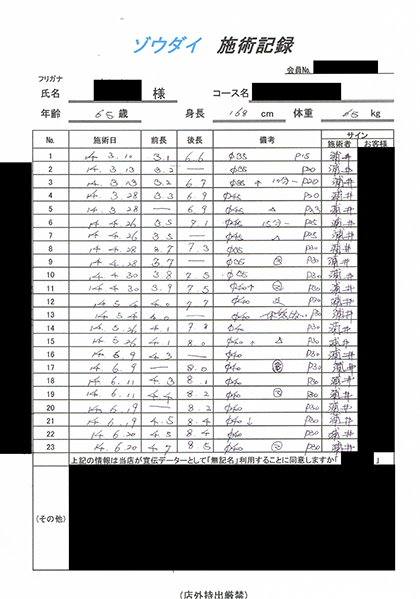 ゾウダイ 施術記録
会員No.
フリガナ
氏名 様 コース名
年齢 65 歳 身長 168 cm 体重 65 kg
No. 施術日 前長 後長 備考 サイン
施術者 お客様
1 14 3.10 3.1 6.6 φ35 P15 浦井
2 14 3 13 3.2 — φ35 P20 浦井
3 14 3 13 3.2 6.7 φ35 P20 浦井
4 14 3.28 3.3 6.9 φ45 P20 浦井
5 14 3.28 — 6.9 φ45 浦井
6 14 4.26 3.5 7.1 浦井
7 14 4.26 3.5 — 浦井
8 14 4.28 3.7 7.3 φ35 P30 浦井
9 14 4.28 3.7 — φ35 P30 浦井
10 14 4 30 3.8 7.5 φ35 P30 浦井
11 14 4 30 3.9 7.5 φ40 ↑ P30 浦井
12 14 5 4 4.0 7.7 φ40 浦井
13 14 5 4 4.0 — 浦井
14 14 5.26 4.1 φ40 P30 浦井
15 14 5.26 4.1 8.0 φ40 P30 浦井
16 14 6 9 4.3 — φ40 P30 浦井
17 14 6.9 — 8.0 φ40 P30 浦井
18 14 6.11 4.3 8.1 φ40 P30 浦井
19 14 6.11 4.4 8.2 φ40 P30 浦井
20 14 6.19 — 8.2 φ40 P30 浦井
21 14 6.19 4.5 8.4 φ40 ↓ P30 浦井
22 14 6.20 4.5 8.4 φ40 P30 浦井
23 14 6.20 4.7 8.5 φ40 P30 浦井
上記の情報は当店が宣伝データーとして「無記名」利用することに同意しますか「 」
(その他)
(店外持出厳禁)